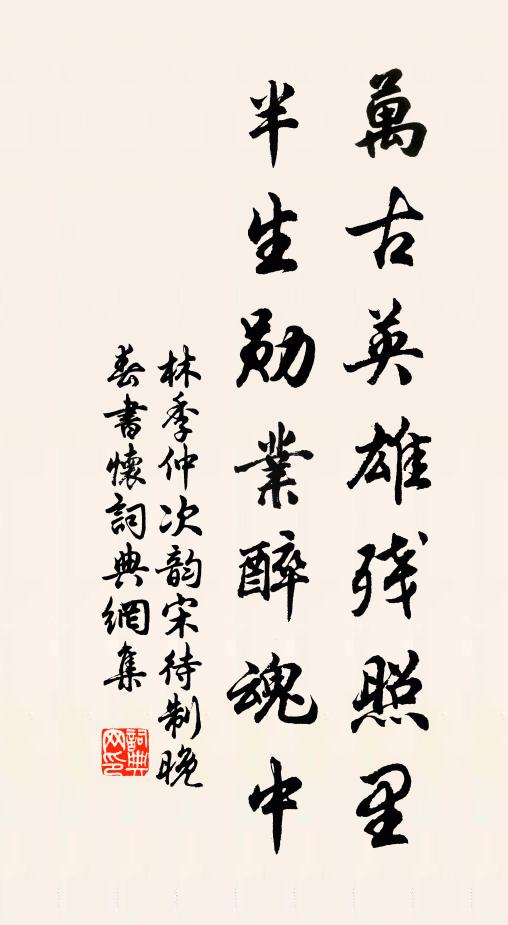 萬古英雄残照里
半生勛業醉魂中
林季仲次韵宋待制晚
春書懷詞典網集
詞典
网印